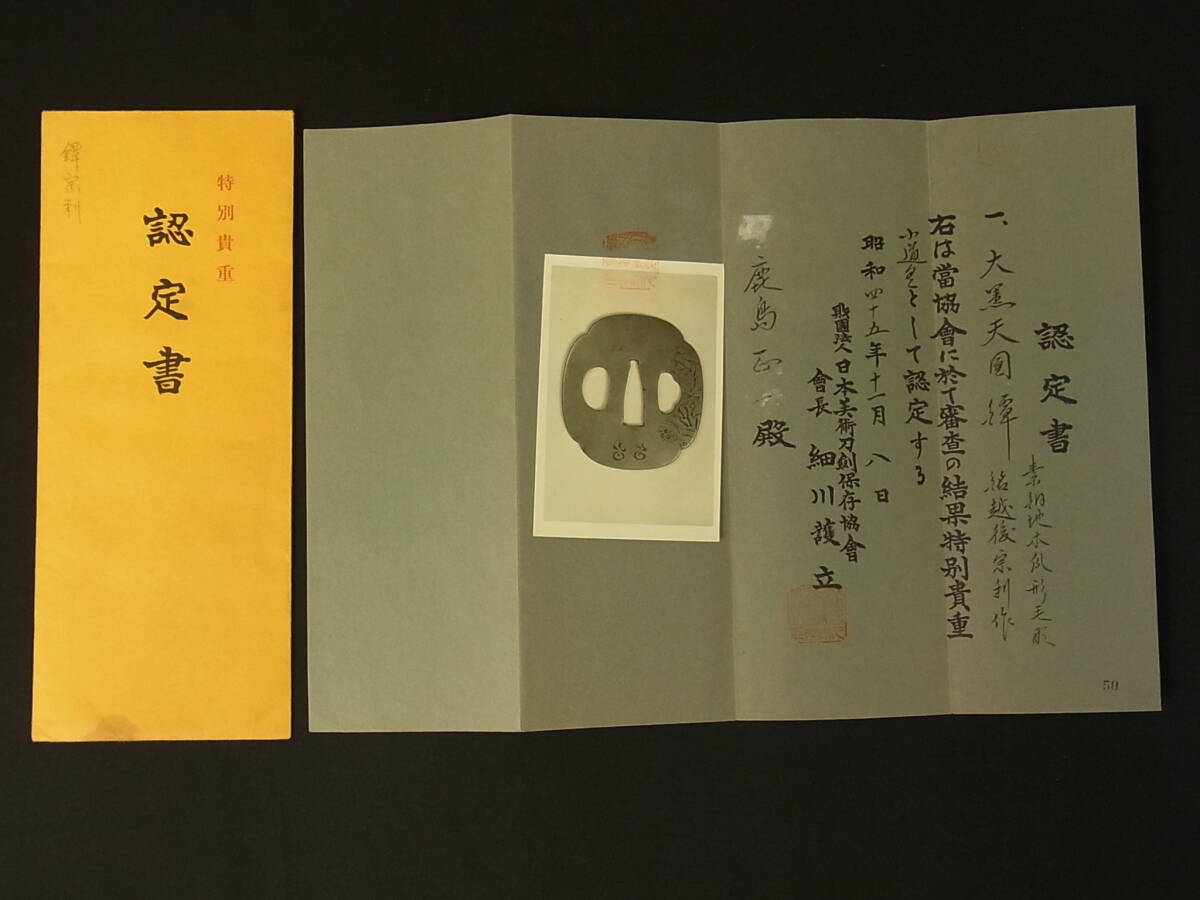 鐔宗利
特別貴重
認定書
認定書
一、大黒天図鐔
素銅地木瓜形毛彫
銘越後宗利作
右は當協會に於て審査の結果特別貴重
小道具として認定する
昭和四十五年十一月八日
財團法人日本美術刀劍保存協會
會長 細川護立
鹿島 殿
50